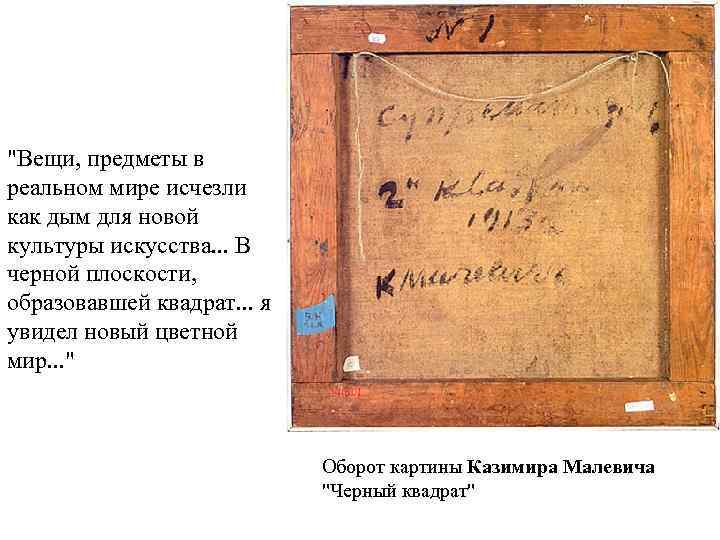 "Вещи, предметы в
реальном мире исчезли
как дым для новой
культуры искусства... В
черной плоскости,
образовавшей квадрат... я
увидел новый цветной
мир..."
N 1
Супрематизм
1913
К Малевич
Оборот картины Казимира Малевича
"Черный квадрат"